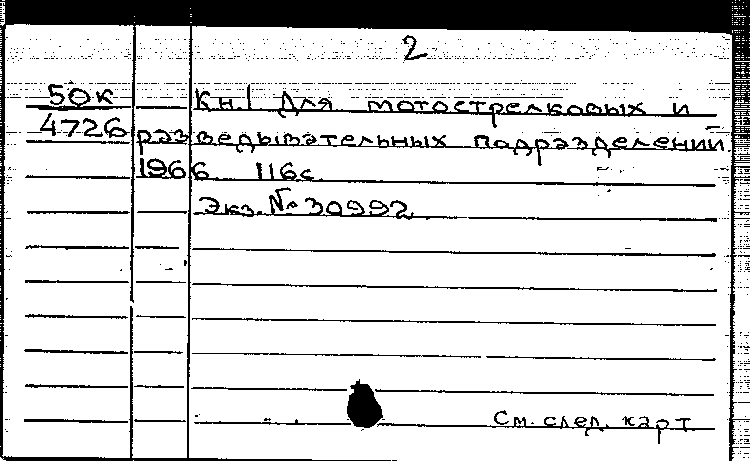 2
50к Кн.1 Для мотострелковых и
4726 разведывательных подразделений.
1966. 116с.
Экз. № 30992.
См. след. карт.